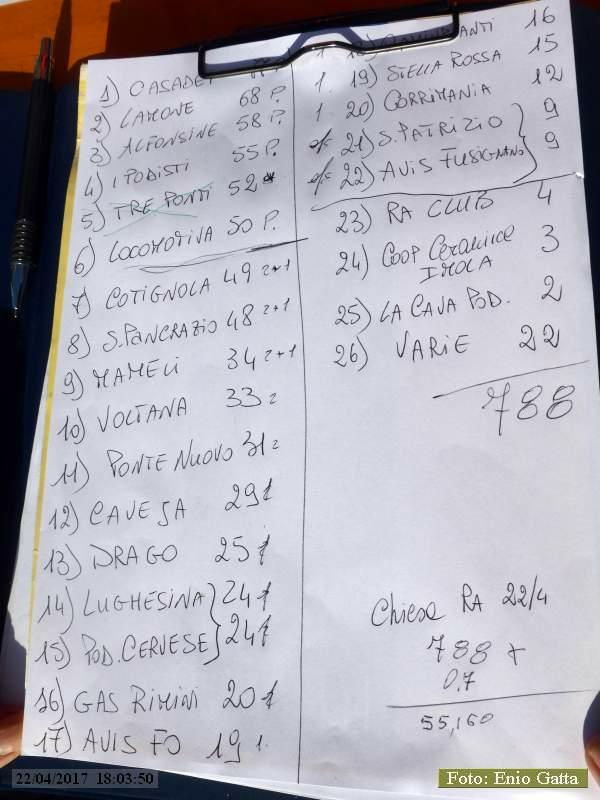 1) CASADEI
2) LAMONE 68 P.
3) ALFONSINE 58 P.
4) I PODISTI 55 P.
5) TRE PONTI 52
6) LOCOMOTIVA 50 P.
7) COTIGNOLA 49 2+1
8) S.PANCRAZIO 48 2+1
9) MAMELI 34 2+1
10) VOLTANA 33 2
11) PONTE NUOVO 31 2
12) CAVEJA 29 1
13) DRAGO 25 1
14) LUGHESINA 24 1
15) POD. CERVESE 24 1
16) GAS RIMINI 20 1
17) AVIS FO 19 1.
16
1. 19) STELLA ROSSA 15
1 20) CORRIMANIA 12
21) S. PATRIZIO 9
22) AVIS FUSIGNANO 9
23) RA CLUB 4
24) COOP CERAMICA IMOLA 3
25) LA CAVA POD. 2
26) VARIE 22
788
Chiesa RA 22/4
788 +
0,7
55,160
22/04/2017 18:03:50
Foto: Enio Gatta